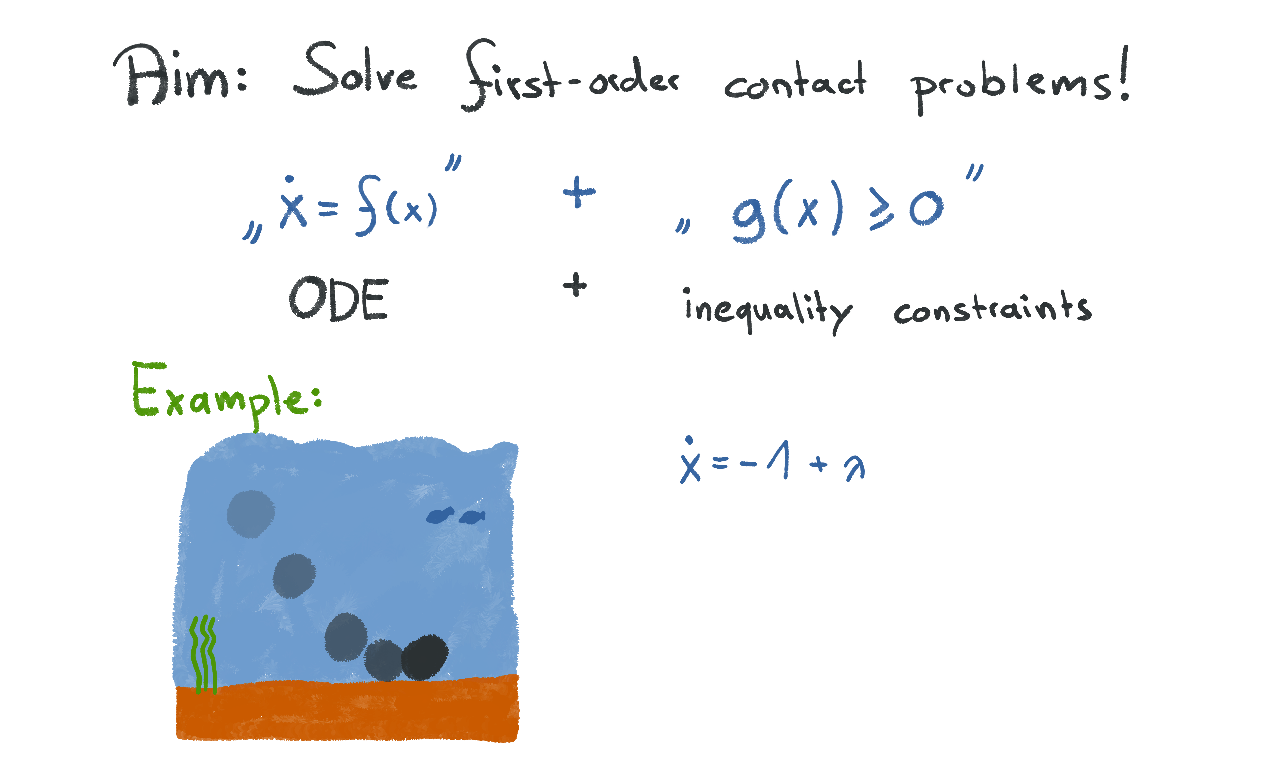 Aim: Solve first-order contact problems!
„ẋ = f(x)” + „g(x) ⩾ 0”
ODE + inequality constraints
Example:
ẋ = -1 + λ